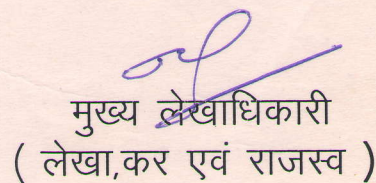 मुख्य लेखाधिकारी
( लेखा,कर एवं राजस्व )